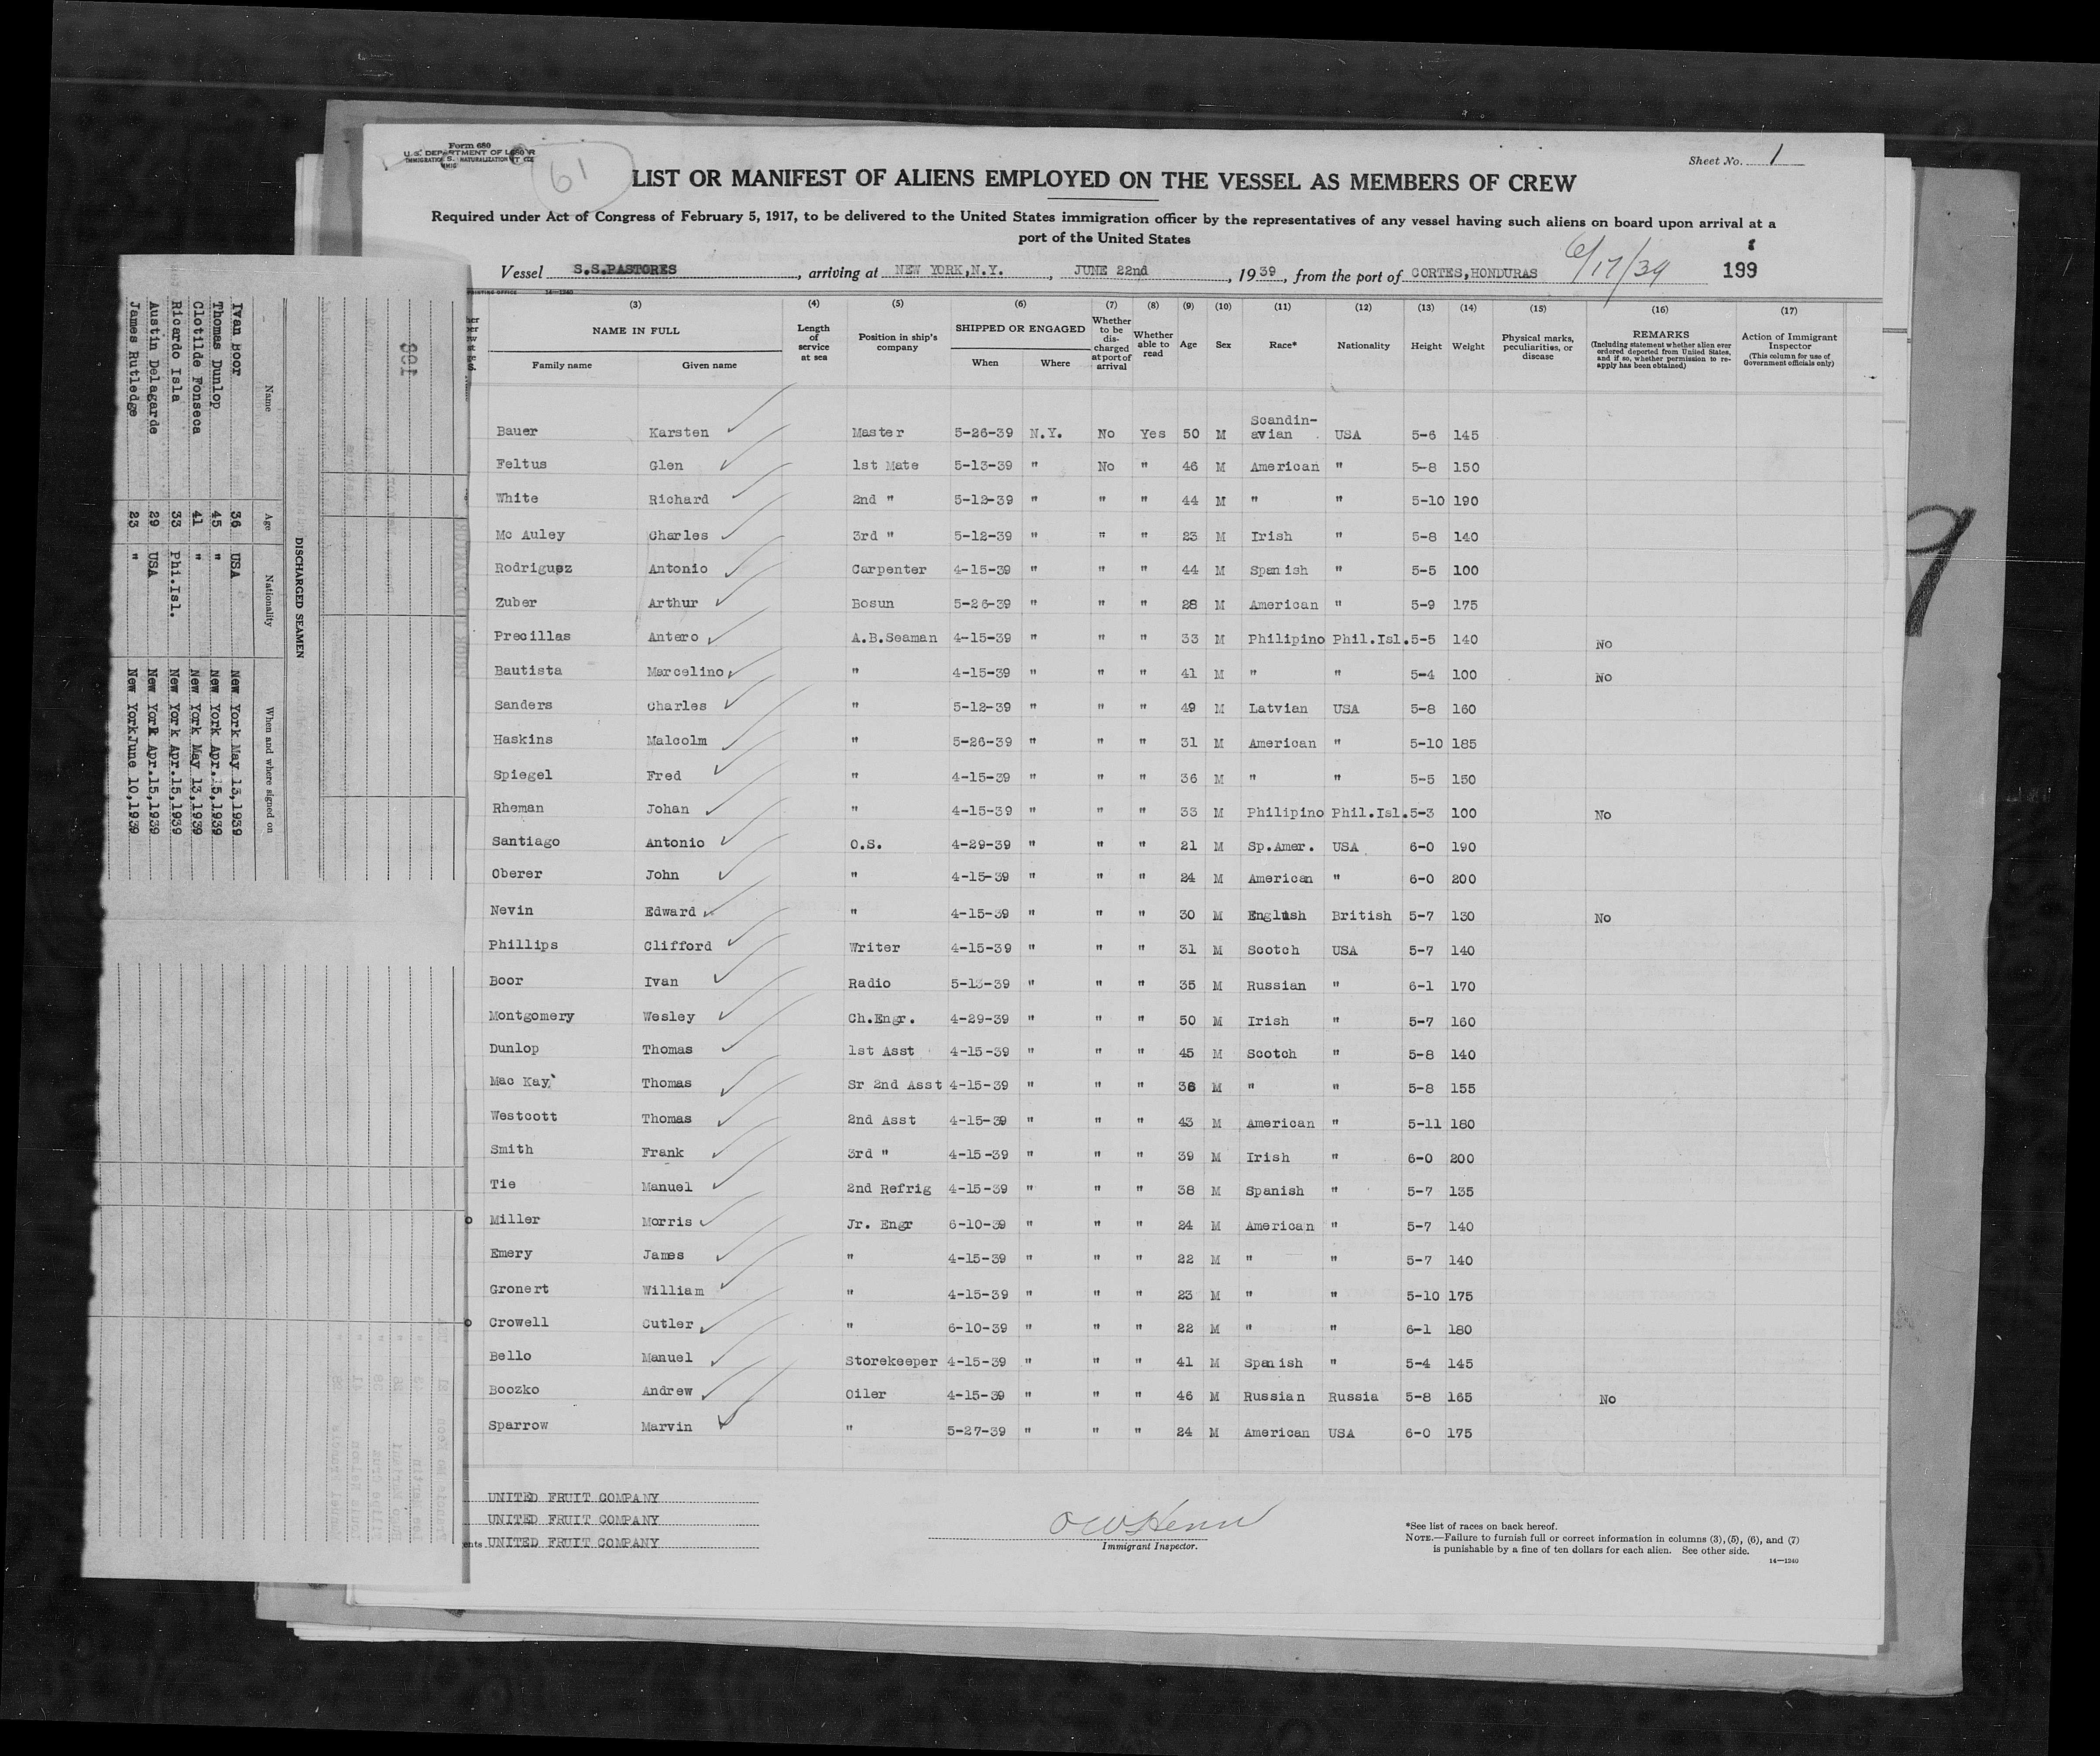 Form 680
U.S. DEPARTMENT OF LABOR
61
Sheet No. 1
LIST OR MANIFEST OF ALIENS EMPLOYED ON THE VESSEL AS MEMBERS OF CREW
Required under Act of Congress of February 5, 1917, to be delivered to the United States immigration officer by the representatives of any vessel having such aliens on board upon arrival at a
port of the United States
Vessel S.S.PASTORES, arriving at NEW YORK,N.Y., JUNE 22nd, 1939, from the port of CORTES,HONDURAS 6/17/39 199
(3) (4) (5) (6) (7) (8) (9) (10) (11) (12) (13) (14) (15) (16) (17)
NAME IN FULL
Family name Given name
Length of service at sea
Position in ship's company
SHIPPED OR ENGAGED
When Where
Whether to be discharged at port of arrival
Whether able to read
Age Sex Race* Nationality Height Weight
Physical marks, peculiarities, or disease
REMARKS
(Including statement whether alien ever ordered deported from United States, and if so, whether permission to reapply has been obtained)
Action of Immigrant Inspector
(This column for use of Government officials only)
Bauer Karsten Master 5-26-39 N.Y. No Yes 50 M Scandin-avian USA 5-6 145
Feltus Glen 1st Mate 5-13-39 " No " 46 M American " 5-8 150
White Richard 2nd " 5-12-39 " " " 44 M " " 5-10 190
Mc Auley Charles 3rd " 5-12-39 " " " 23 M Irish " 5-8 140
Rodriguez Antonio Carpenter 4-15-39 " " " 44 M Spanish " 5-5 100
Zuber Arthur Bosun 5-26-39 " " " 28 M American " 5-9 175
Precillas Antero A.B.Seaman 4-15-39 " " " 33 M Philipino Phil.Isl. 5-5 140 No
Bautista Marcelino " 4-15-39 " " " 41 M " " 5-4 100 No
Sanders Charles " 5-12-39 " " " 49 M Latvian USA 5-8 160
Haskins Malcolm " 5-26-39 " " " 31 M American " 5-10 185
Spiegel Fred " 4-15-39 " " " 36 M " " 5-5 150
Rheman Johan " 4-15-39 " " " 33 M Philipino Phil.Isl. 5-3 100 No
Santiago Antonio O.S. 4-29-39 " " " 21 M Sp.Amer. USA 6-0 190
Oberer John " 4-15-39 " " " 24 M American " 6-0 200
Nevin Edward " 4-15-39 " " " 30 M English British 5-7 130 No
Phillips Clifford Writer 4-15-39 " " " 31 M Scotch USA 5-7 140
Boor Ivan Radio 5-13-39 " " " 35 M Russian " 6-1 170
Montgomery Wesley Ch.Engr. 4-29-39 " " " 50 M Irish " 5-7 160
Dunlop Thomas 1st Asst 4-15-39 " " " 45 M Scotch " 5-8 140
Mac Kay Thomas Sr 2nd Asst 4-15-39 " " " 36 M " " 5-8 155
Westcott Thomas 2nd Asst 4-15-39 " " " 43 M American " 5-11 180
Smith Frank 3rd " 4-15-39 " " " 39 M Irish " 6-0 200
Tie Manuel 2nd Refrig 4-15-39 " " " 38 M Spanish " 5-7 135
Miller Morris Jr. Engr 6-10-39 " " " 24 M American " 5-7 140
Emery James " 4-15-39 " " " 22 M " " 5-7 140
Gronert William " 4-15-39 " " " 23 M " " 5-10 175
Crowell Cutler " 6-10-39 " " " 22 M " " 6-1 180
Bello Manuel Storekeeper 4-15-39 " " " 41 M Spanish " 5-4 145
Boozko Andrew Oiler 4-15-39 " " " 46 M Russian Russia 5-8 165 No
Sparrow Marvin " 5-27-39 " " " 24 M American USA 6-0 175
UNITED FRUIT COMPANY
UNITED FRUIT COMPANY
UNITED FRUIT COMPANY
Immigrant Inspector.
*See list of races on back hereof.
NOTE.—Failure to furnish full or correct information in columns (3), (5), (6), and (7)
is punishable by a fine of ten dollars for each alien. See other side.
14—1240
DISCHARGED SEAMEN
Name Age Nationality When and where signed on
Ivan Boor 36 USA New York May 13,1939
Thomas Dunlop 45 " New York Apr.15,1939
Clotilde Fonseca 41 " New York May 13,1939
Ricardo Isla 33 Phi.Isl. New York Apr.15,1939
Austin Delagarde 29 USA New York Apr.15,1939
James Rutledge 23 " New York June 10,1939
9